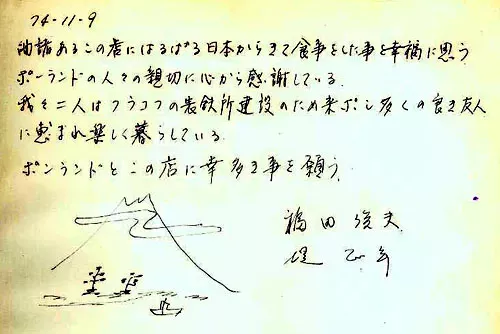 74-11-9
由緒あるこの店にはるばる日本からきて食事をした事を幸福に思う
ポーランドの人々の親切に心から感謝している.
我々二人はクラコフの製鉄所建設のため来ポし多くの良き友人
に恵まれ楽しく暮らしている.
ポンランドとこの店に幸多き事を願う.
福田俊夫